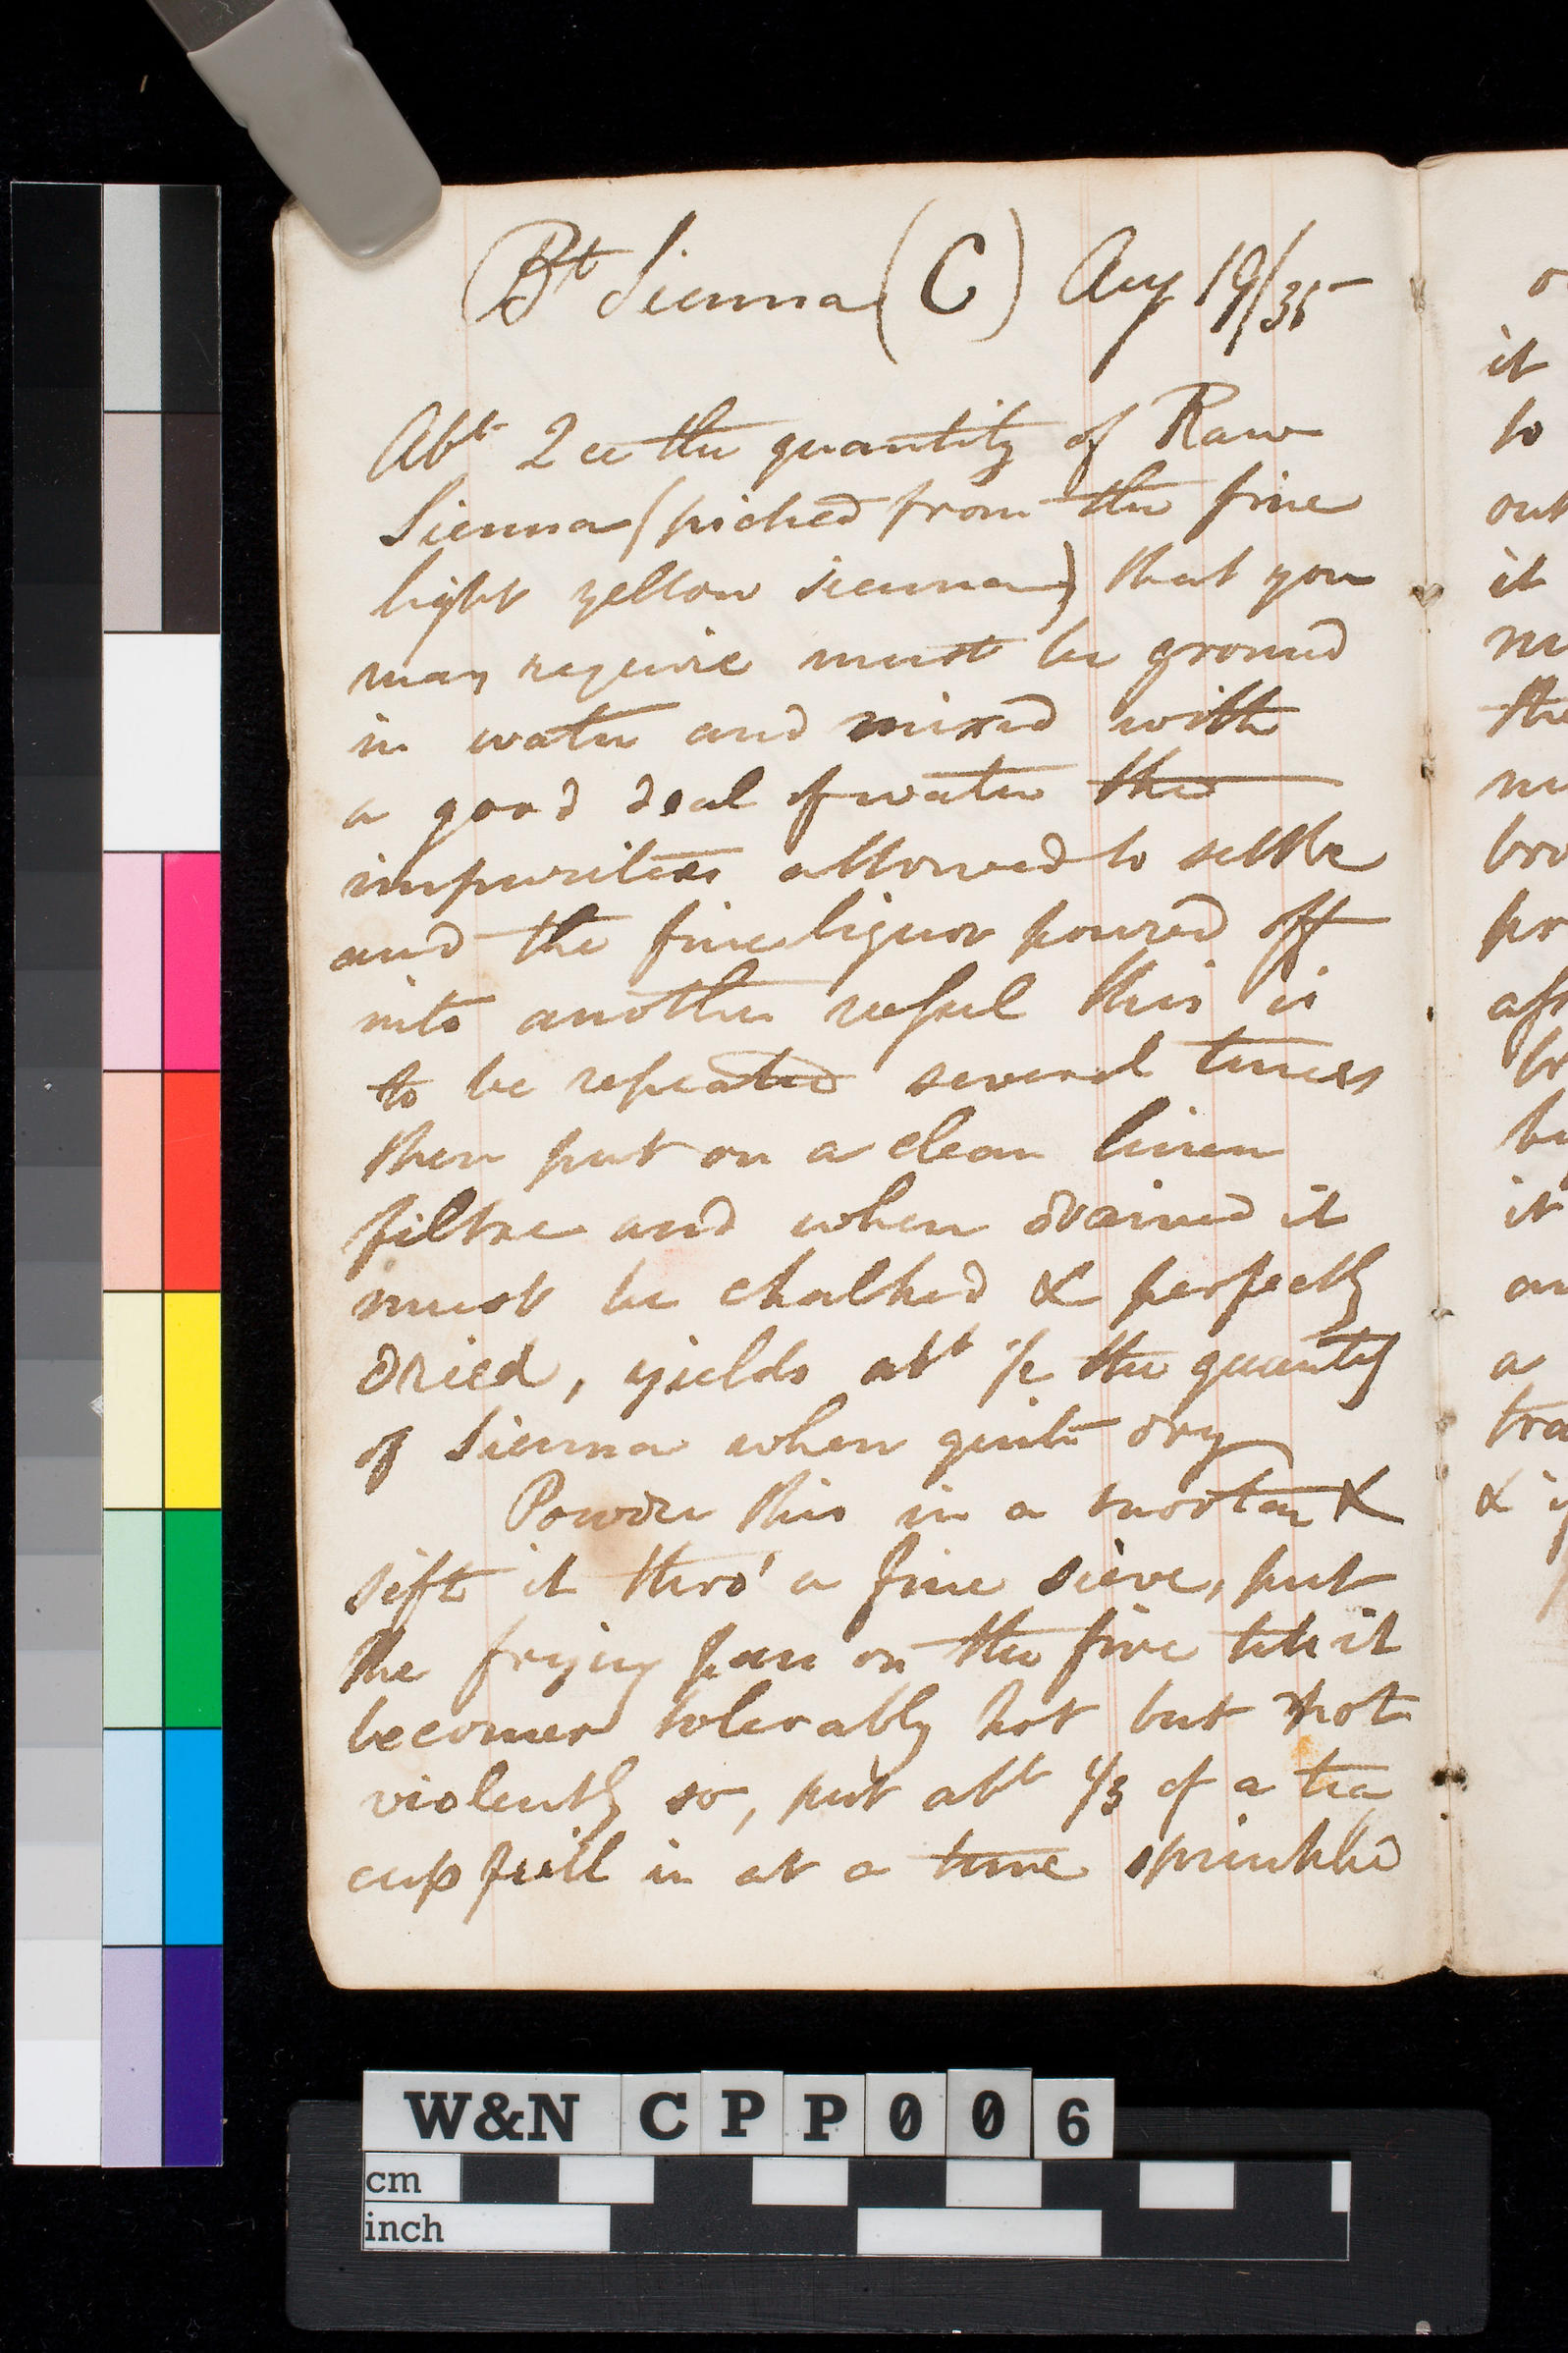 Bt Sienna (C) Aug 19/35
Abt 2ce the quantity of Raw
Sienna (picked from the fine
light yellow sienna) that you
may require must be ground
in water and mixed with
a good deal of water the
impurities allowed to settle
and the fine liquor poured off
into another vessel this is
to be repeated several times
then put on a clean linen
filtre and when drained it
must be chalked & perfectly
dried, yields abt ½ the quantity
of Sienna when quite dry
Powder this in a mortar &
sift it thro' a fine sieve, put
the frying pan on the fire till it
becomes tolerably hot but not
violently so, put abt 1/3 of a tea
cup full in at a time sprinkled
o
it
to
out
it
the
bro
po
br
it
a
tra
& i
W&N CPP006
cm
inch